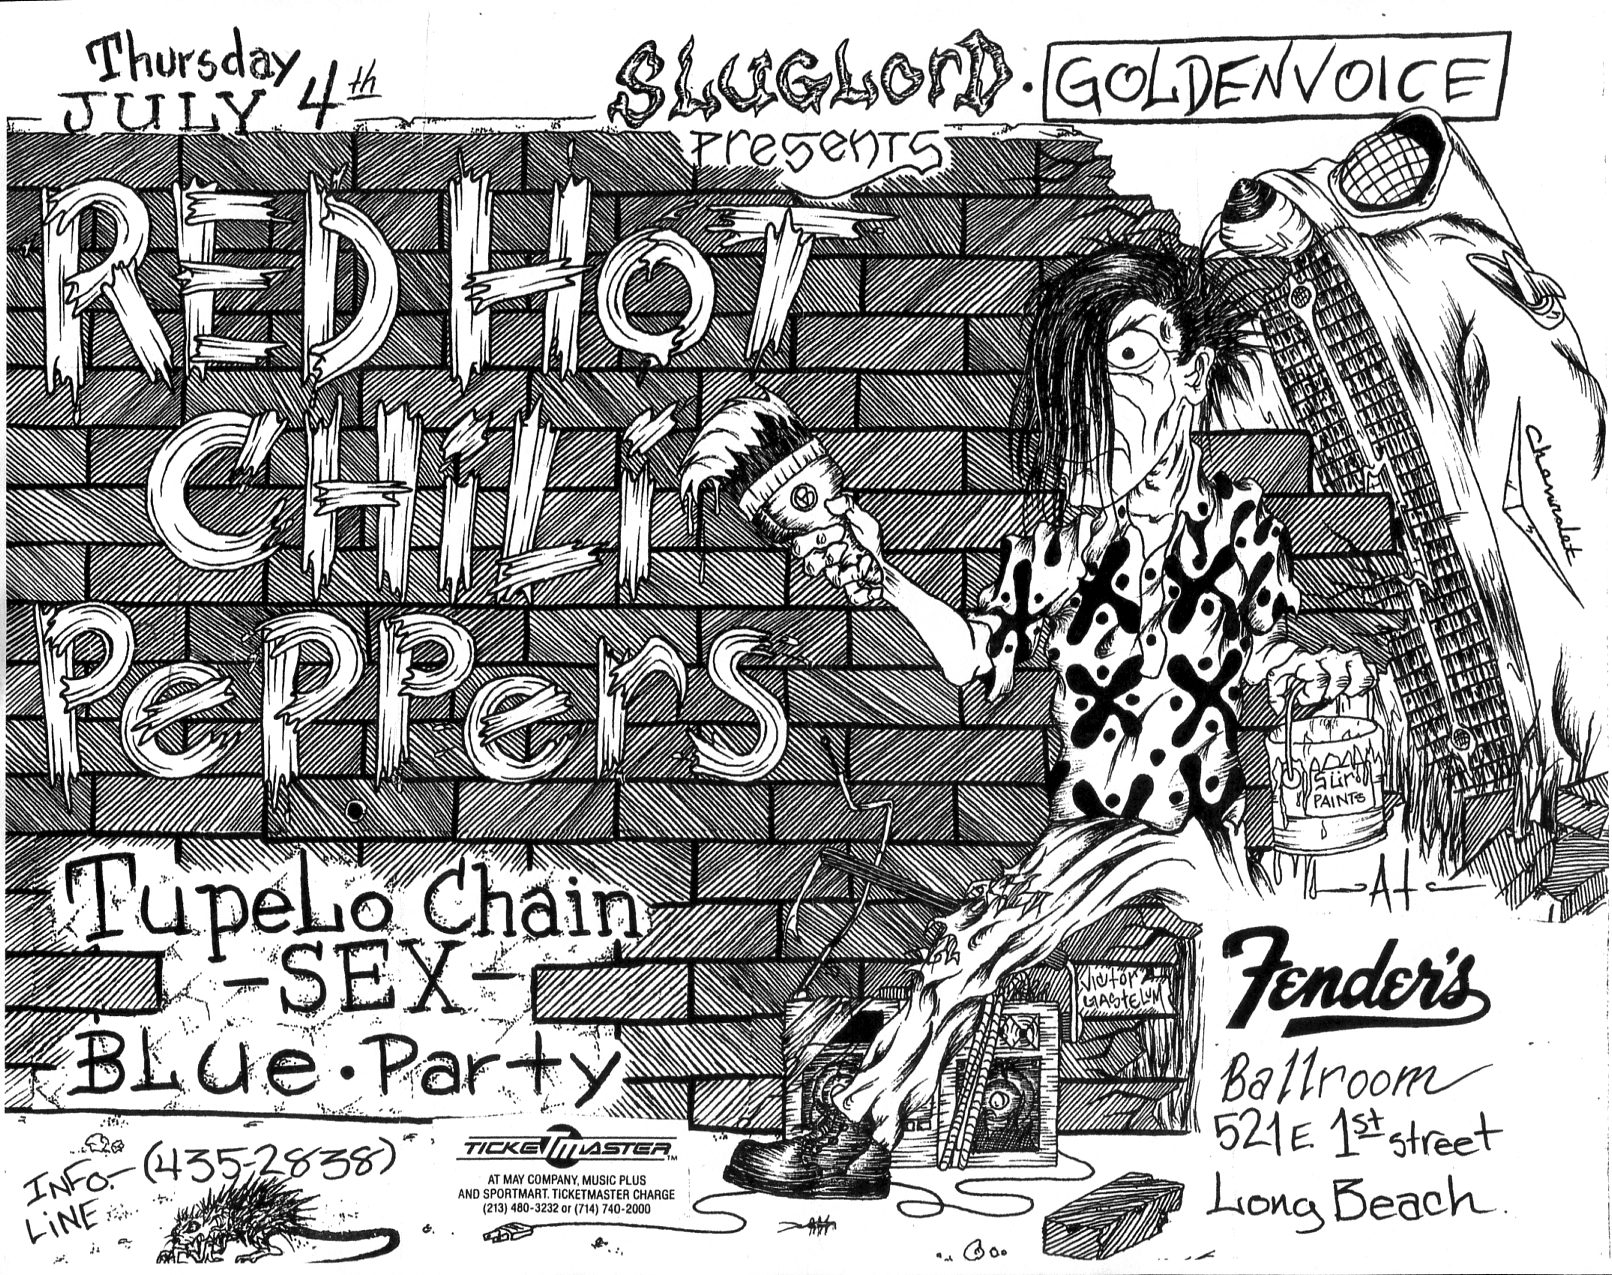 Thursday
JULY 4th
SLUGLORD · GOLDENVOICE
Presents
RED HOT
CHILI
PEPPERS
Chavvrolet
SLIP
PAINTS
At
Tupelo Chain
-SEX-
Blue · Party
Victor
GASTELUM
Fender's
Ballroom
521 E 1st street
Long Beach.
INFO- (435-2838)
LINE
TICKETMASTER™
AT MAY COMPANY, MUSIC PLUS
AND SPORTMART. TICKETMASTER CHARGE
(213) 480-3232 or (714) 740-2000